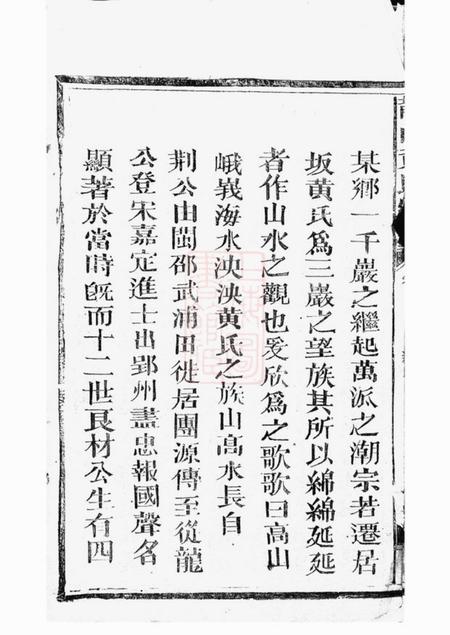 某鄉一千巖之繼起萬派之潮宗若遷居
坂黃氏爲三巖之望族其所以綿綿延延
者作山水之觀也爰欣爲之歌歌曰高山
峨峩海水泱泱黃氏之族山高水長自
荆公由閩邵武浦田徙居團源傳至從龍
公登宋嘉定進士出郢州盡忠報國聲名
顯著於當時旣而十二世良材公生有四